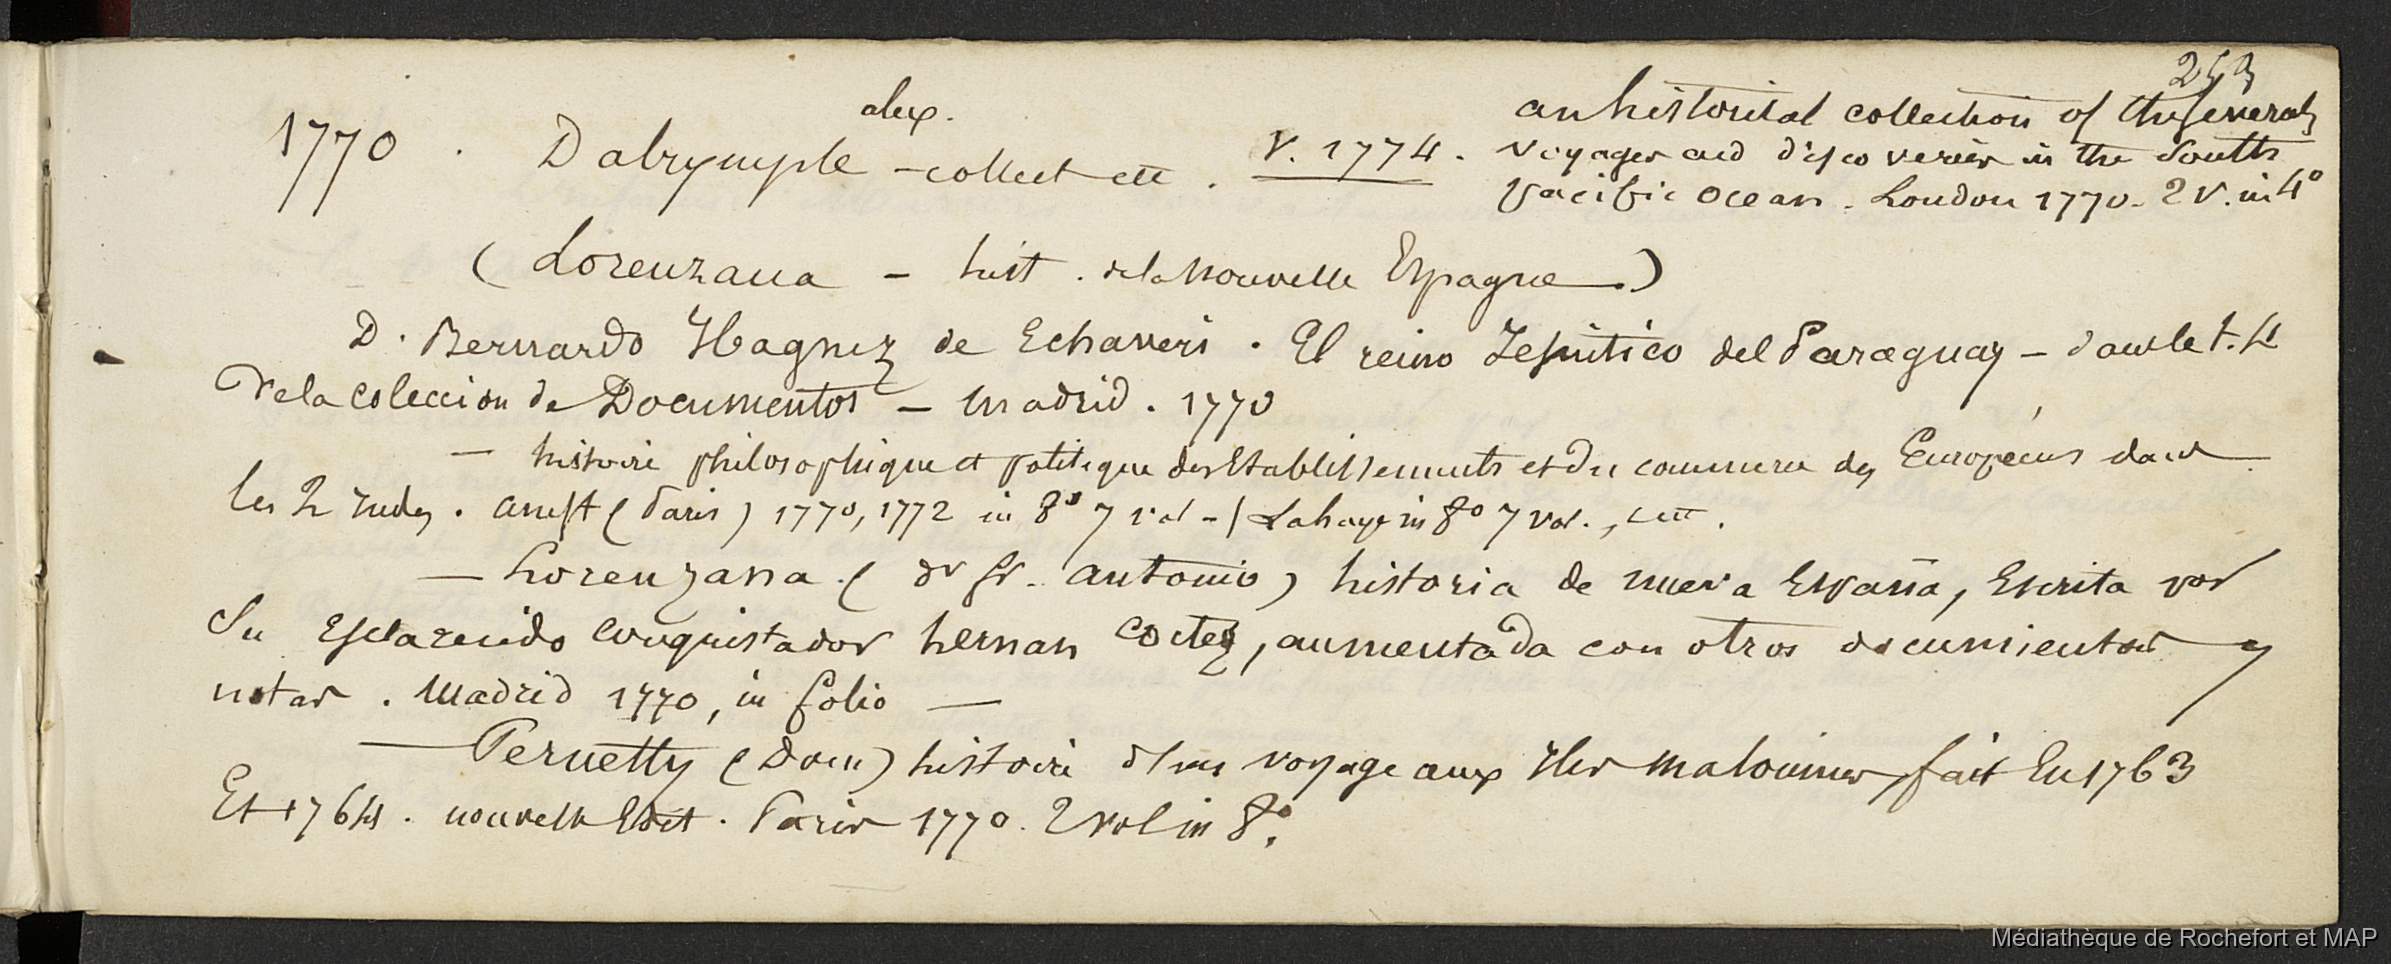 253
alex.
1770 . Dalrymple - collect etc . v. 1774 .
an historical collection of the several
voyages and discoveries in the South
pacific Ocean . London 1770 - 2 v. in 4º
( Lorenzana - hist . de la nouvelle Espagne . )
D . Bernardo Ibagnez de Echaveri . El reino Jesuitico del Paraguay - dans le t. 4
de la coleccion de Documentos - Madrid . 1770
- histoire philosophique et politique des Etablissements et du commerce des Européens dans
les 2 Indes . amst ( Paris ) 1770, 1772 in 8º 7 vol - / La haye in 8º 7 vol. , etc .
- Lorenzana ( dr fr. antonio ) historia de nueva España, Escrita por
Su Esclarecido conquistador hernan Cortez, aumentada con otros documientos y
notas . Madrid 1770, in folio -
- Pernetty ( Dom ) histoire d'un voyage aux Iles malouines, fait En 1763
Et 1764 . nouvelle Edit . Paris 1770 . 2 vol in 8º.
Médiathèque de Rochefort et MAP